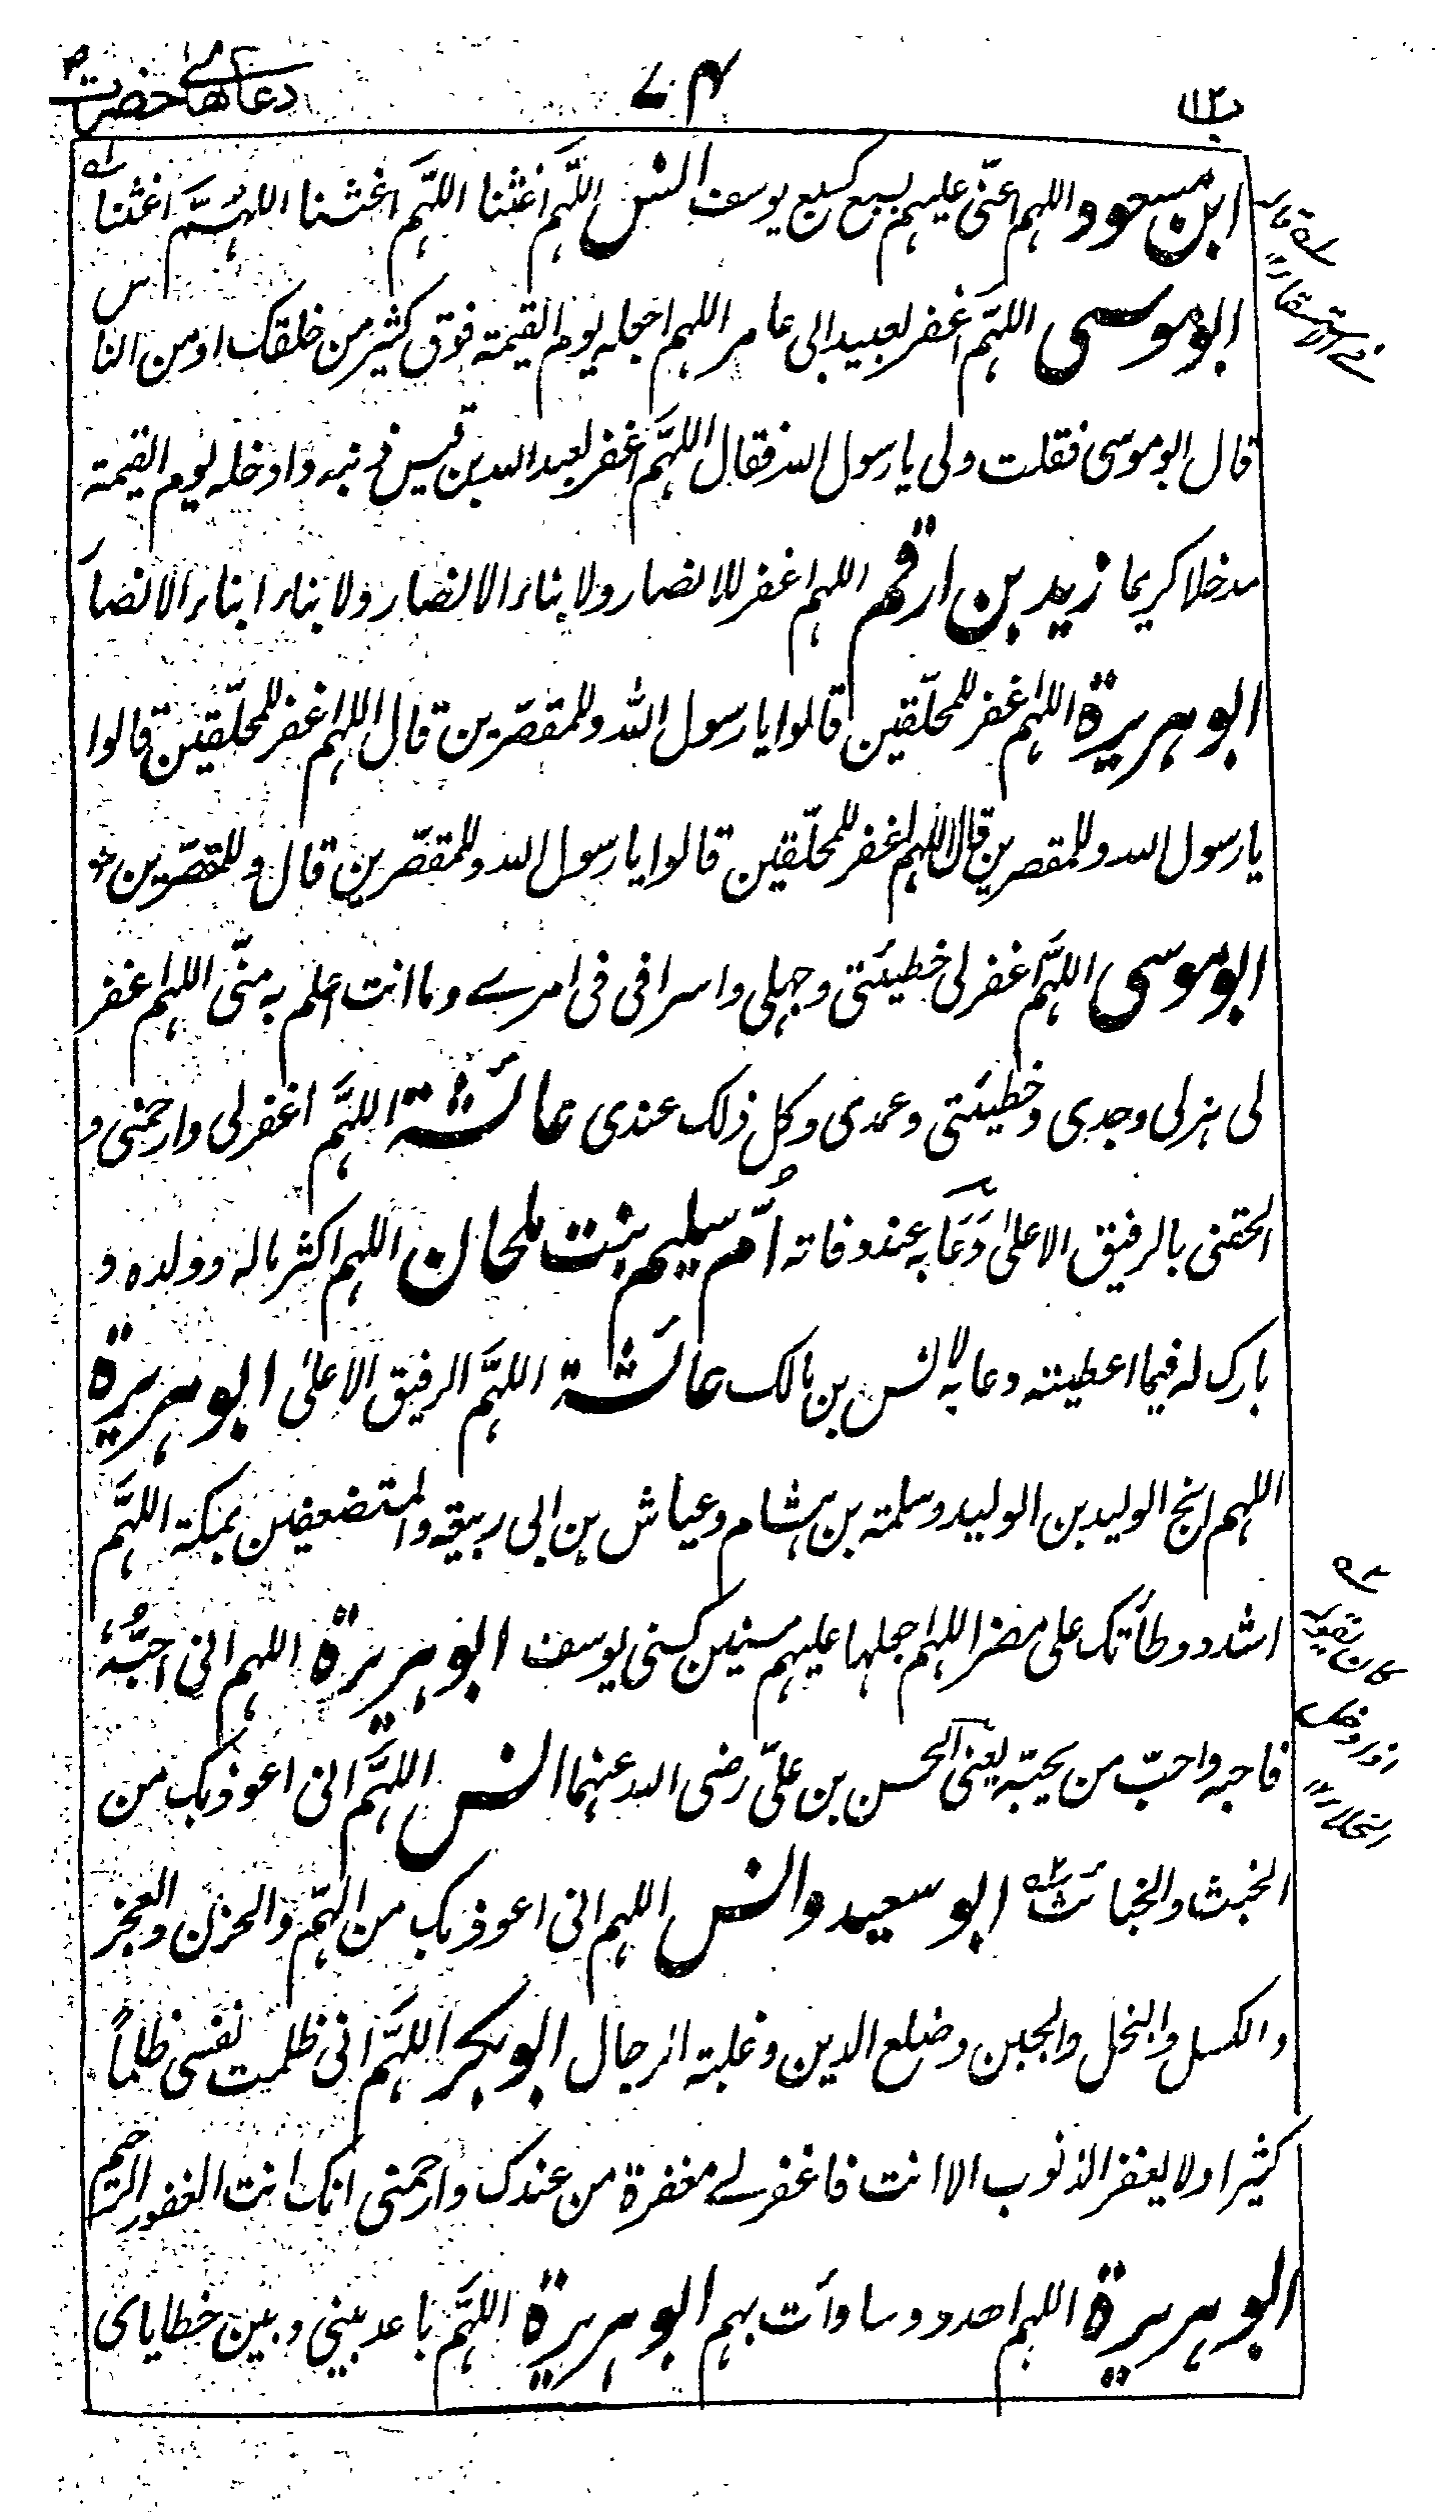 ب ۱۲
۷۰۴
دعاهای حضرت ص
ابن مسعود اللهم اعنّی علیهم بسبع کسبع یوسف انس اللّهم اغثنا اللّهمّ اغثنا اللهمّ اغثنا
ابو موسی اللّهمّ اغفر لعبید ابی عامر اللهم اجعله یوم القیمة فوق کثیر من خلقک او من الناس
قال ابو موسی فقلت ولی یا رسول الله فقال اللهمّ اغفر لعبد الله بن قیس ذنبه وادخله یوم القیمة
مدخلا کریما زید بن ارقم اللهم اغفر للانصار ولابناء الانصار ولابناء ابناء الانصار
ابو هریرة اللهم اغفر للمحلّقین قالوا یا رسول الله وللمقصّرین قال اللهم اغفر للمحلّقین قالوا
یا رسول الله وللمقصرین قال اللهم اغفر للمحلّقین قالوا یا رسول الله وللمقصّرین قال وللمقصّرین
ابو موسی اللهمّ اغفر لی خطیئتی وجهلی واسرافی فی امرے وما انت اعلم به منّی اللهم اغفر
لی هزلی وجدی وخطیئتی وعمدی وکل ذلک عندی عائشة اللهمّ اغفر لی وارحمنی و
الحقنی بالرفیق الاعلی دَعَا به عند وفاته اُمّ سلیم بنت ملحان اللهم اکثر ماله وولده و
بارک له فیما اعطیته دعا به لانس بن مالک عائشة اللهمّ الرفیق الاعلی ابو هریرة
اللهم انج الولید بن الولید وسلمة بن هشام وعیاش بن ابی ربیعه والمستضعفین بمکة اللهمّ
اشدد وطأتک علی مضر اللهم اجعلها علیهم سنین کسنی یوسف ابو هریرة اللهم انی احبّهُ
فاحبه واحبّ من یحبّه یعنی الحسن بن علیّ رضی الله عنهما انس اللّهمّ انی اعوذ بک من
الخبث والخبائث ابو سعید وانس اللهم انی اعوذ بک من الهمّ والحزن والعجز
والکسل والبخل والجبن وضلع الدین وغلبة الرجال ابو بکر اللهمّ انی ظلمت نفسی ظلماً
کثیرا ولا یغفر الذنوب الا انت فاغفر لے مغفرة من عندک وارحمنی انک انت الغفور الرحیم
ابو هریرة اللهم اهد دوسا وأت بهم ابو هریرة اللّهمّ باعد بینی وبین خطایای